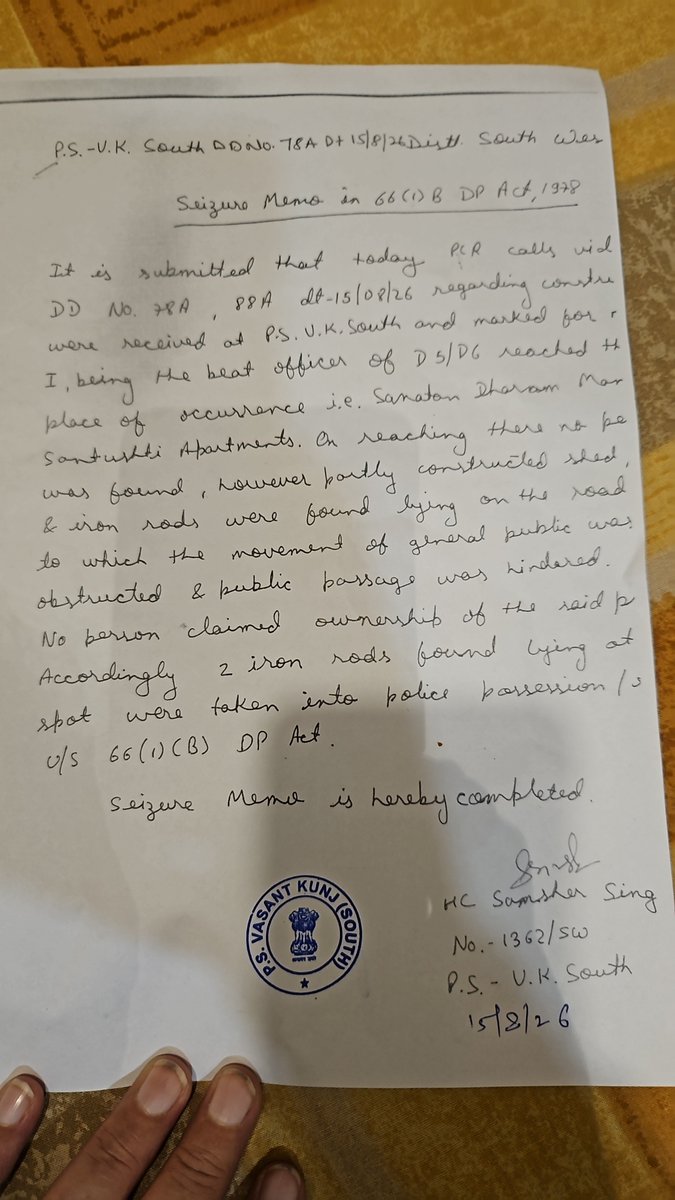 P.S.-V.K. South DD No. 78A Dt 15/8/26 Distt. South Wes
Seizure Memo in 66(1)B DP Act, 1978
It is submitted that today PCR calls vid
DD No. 78A, 88A dt-15/08/26 regarding constru
were received at P.S. V.K. South and marked for
I, being the beat officer of D5/D6 reached th
place of occurrence i.e. Sanatan Dharam Man
Santushti Apartments. On reaching there no pe
was found, however partly constructed shed,
& iron rods were found lying on the road
to which the movement of general public was
obstructed & public passage was hindared.
No person claimed ownership of the said p
Accordingly 2 iron rods found lying at
spot were taken into police possession /s
U/S 66(1)(B) DP Act.
Seizure Memo is hereby completed.
HC Samsher Sing
No.- 1362/SW
P.S.- V.K. South
15/8/26
P.S. VASANT KUNJ (SOUTH)